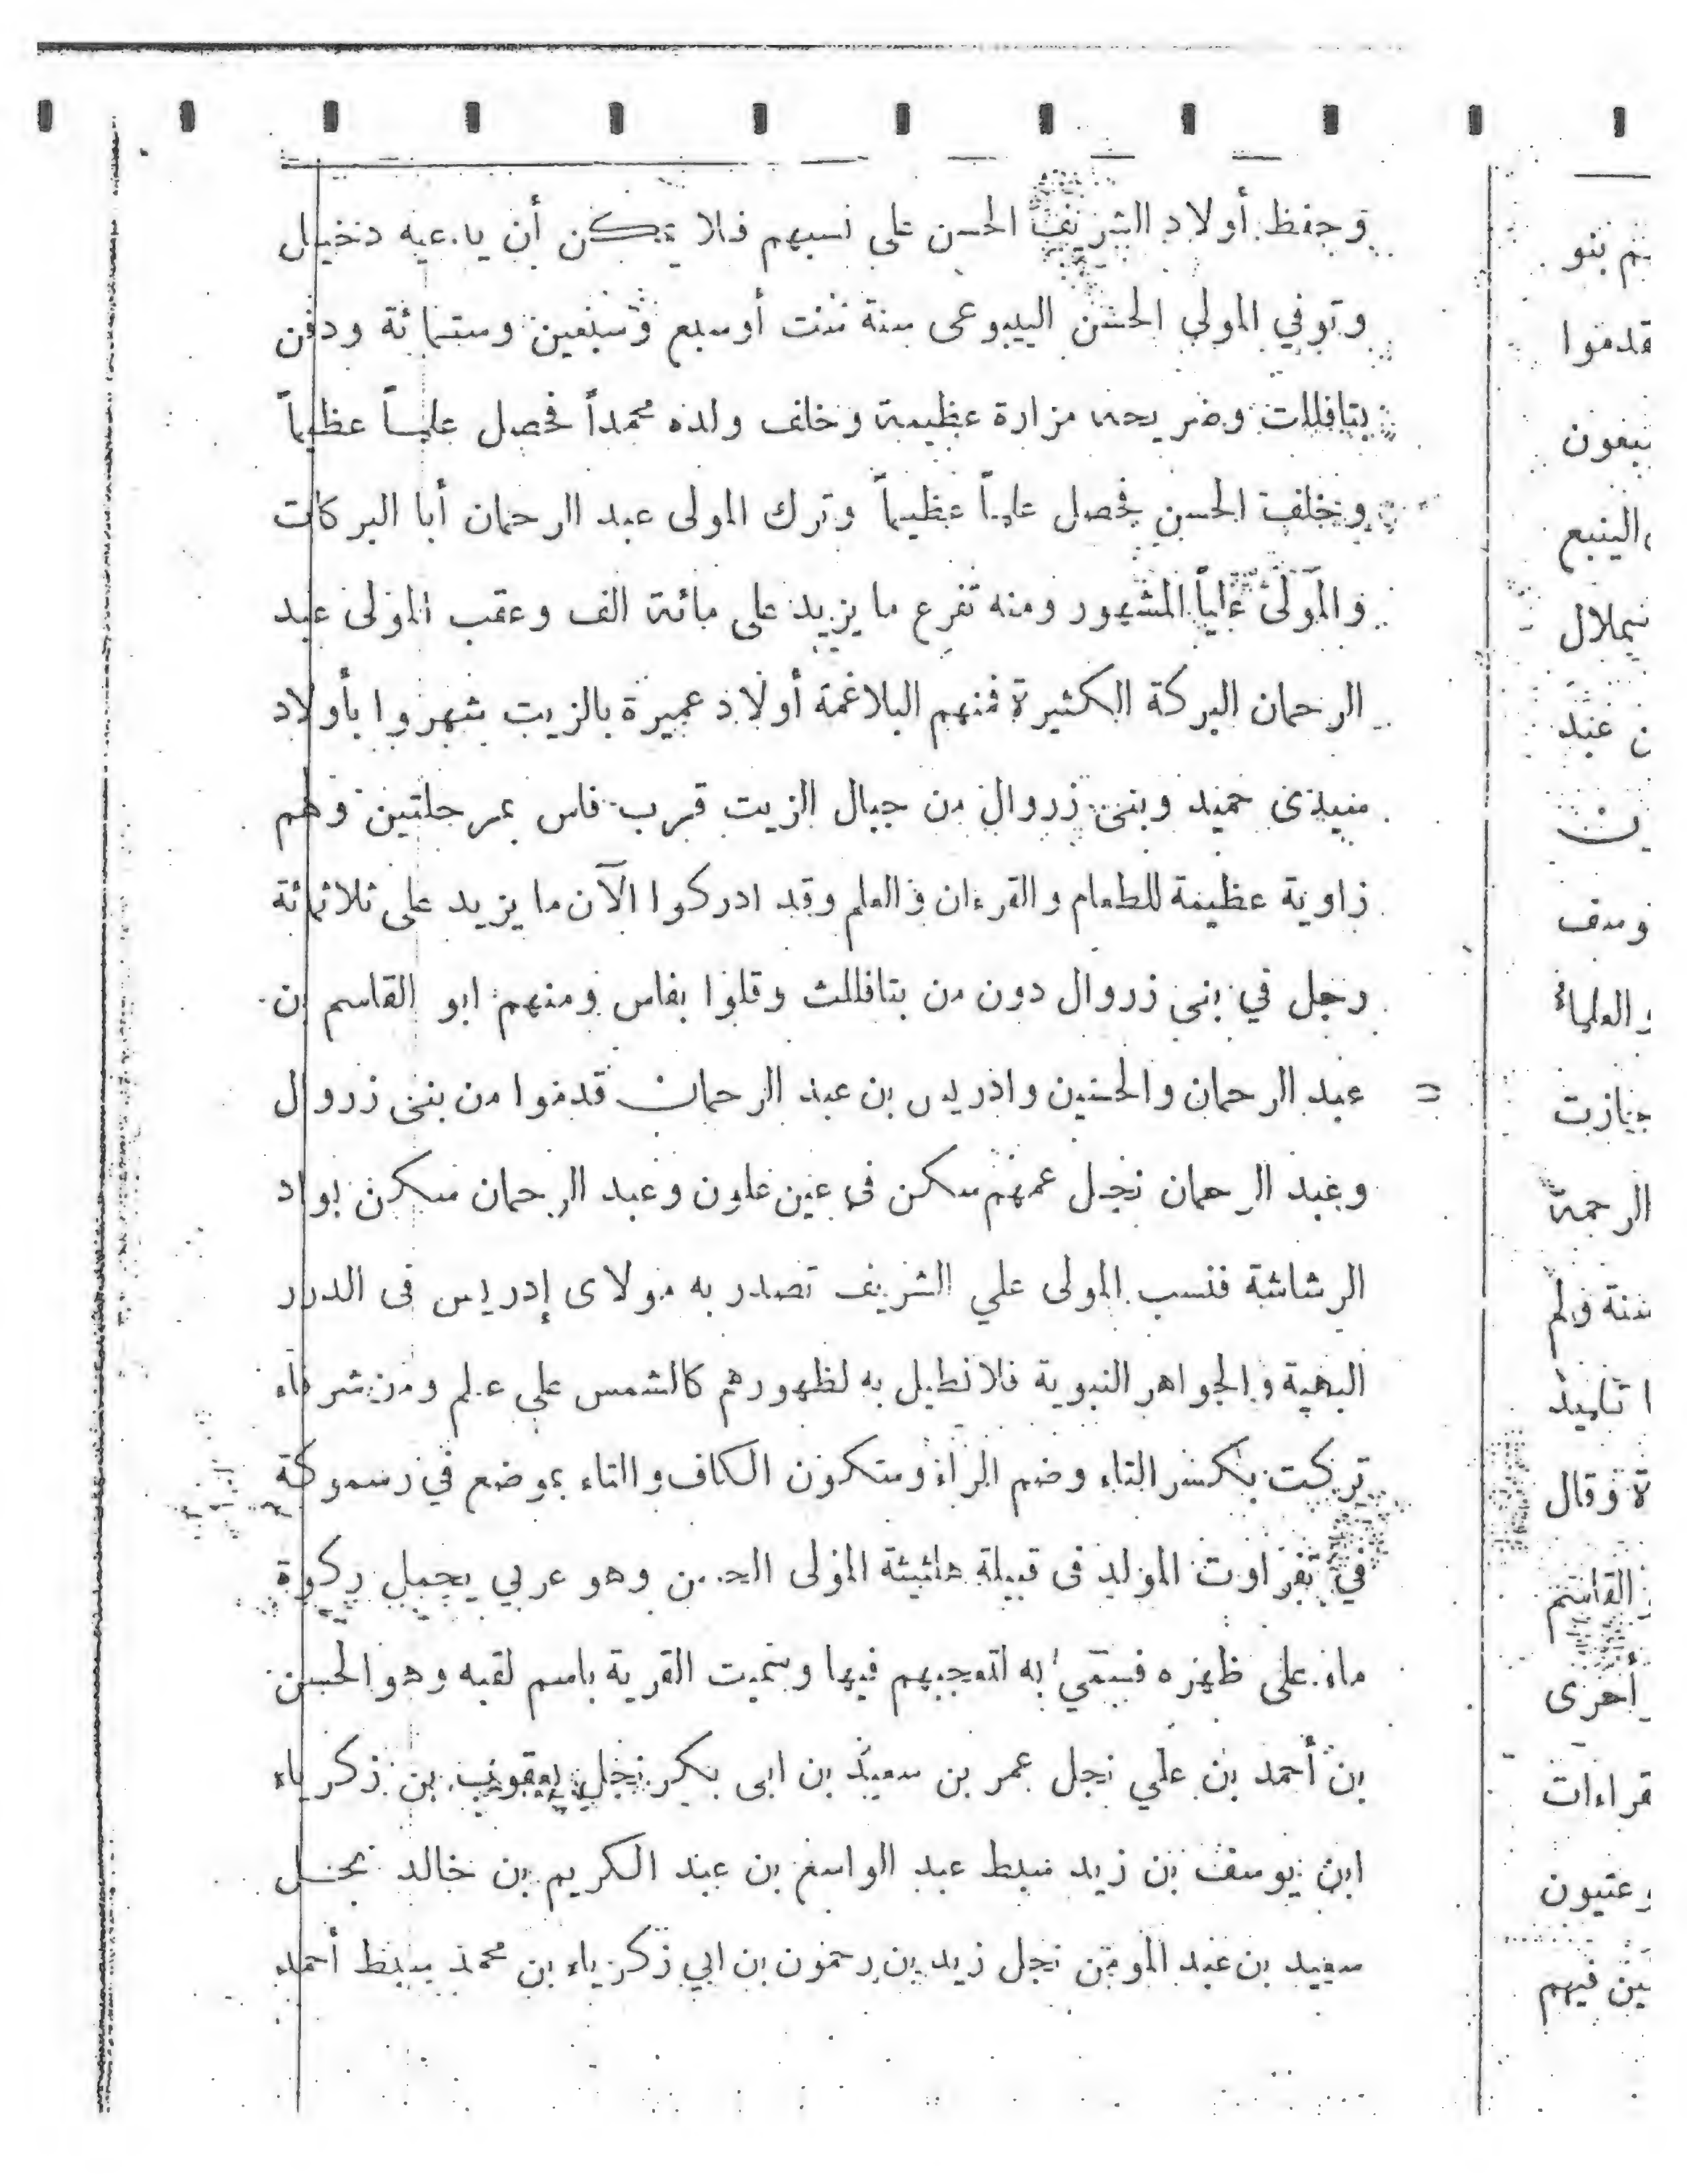 وحفظ أولاد الشريف الحسن على نسبهم فلا تمكن أن يدعيه دخيل
وتوفي المولى الحسن الينبوعى سنة ست أو سبع وسبعين وستمائة ودفن
بتافللت وضريحه مزارة عظيمة وخلف ولده محمداً فحصل علماً عظيماً
وخلف الحسن فحصل علماً عظيماً وترك المولى عبد الرحمان أبا البركات
والمولى علياً المشهور ومنه تفرع ما يزيد على مائة الف وعقب المولى عبد
الرحمان البركة الكثيرة فمنهم البلاغمة أولاد عميرة بالزيت شهروا بأولاد
سيدى حميد وبنى زروال من جبال الزيت قرب فاس بمرحلتين وهم
زاوية عظيمة للطعام والقرءان والعلم وقد ادركوا الآن ما يزيد على ثلاثمائة
رجل في بنى زروال دون من بتافللت وقلوا بفاس ومنهم ابو القاسم بن
عبد الرحمان والحسين وادريس بن عبد الرحمان قدموا من بنى زروال
وعبد الرحمان نجل عمهم سكن فى عين علون وعبد الرحمان سكن بواد
الرشاشة فنسب المولى علي الشريف تصدر به مولاى إدريس فى الدرر
البهية والجواهر النبوية فلا نطيل به لظهورهم كالشمس على علم ومن شرفاء
تركت بكسر التاء وضم الراء وسكون الكاف والتاء بموضع في رسموكة
في تفراوت المولد فى قبيلة المولى الحسن وهو عربي يحمل ركوة
ماء على ظهره فسمي به لتعجبهم فيها وسميت القرية باسم لقبه وهو الحسن
بن أحمد بن علي نجل عمر بن سعيد بن ابى بكر نجل يعقوب بن زكرياء
ابن يوسف بن زيد سبط عبد الواسع بن عبد الكريم بن خالد نجل
سعيد بن عبد المومن نجل زيد بن رحمون بن ابي زكرياء بن محمد سبط أحمد
بنو
قدموا
الينبع
سملال
عبد
العلماء
الرحمة
سنة ولم
وقال
القاسم
أخرى
فيهم